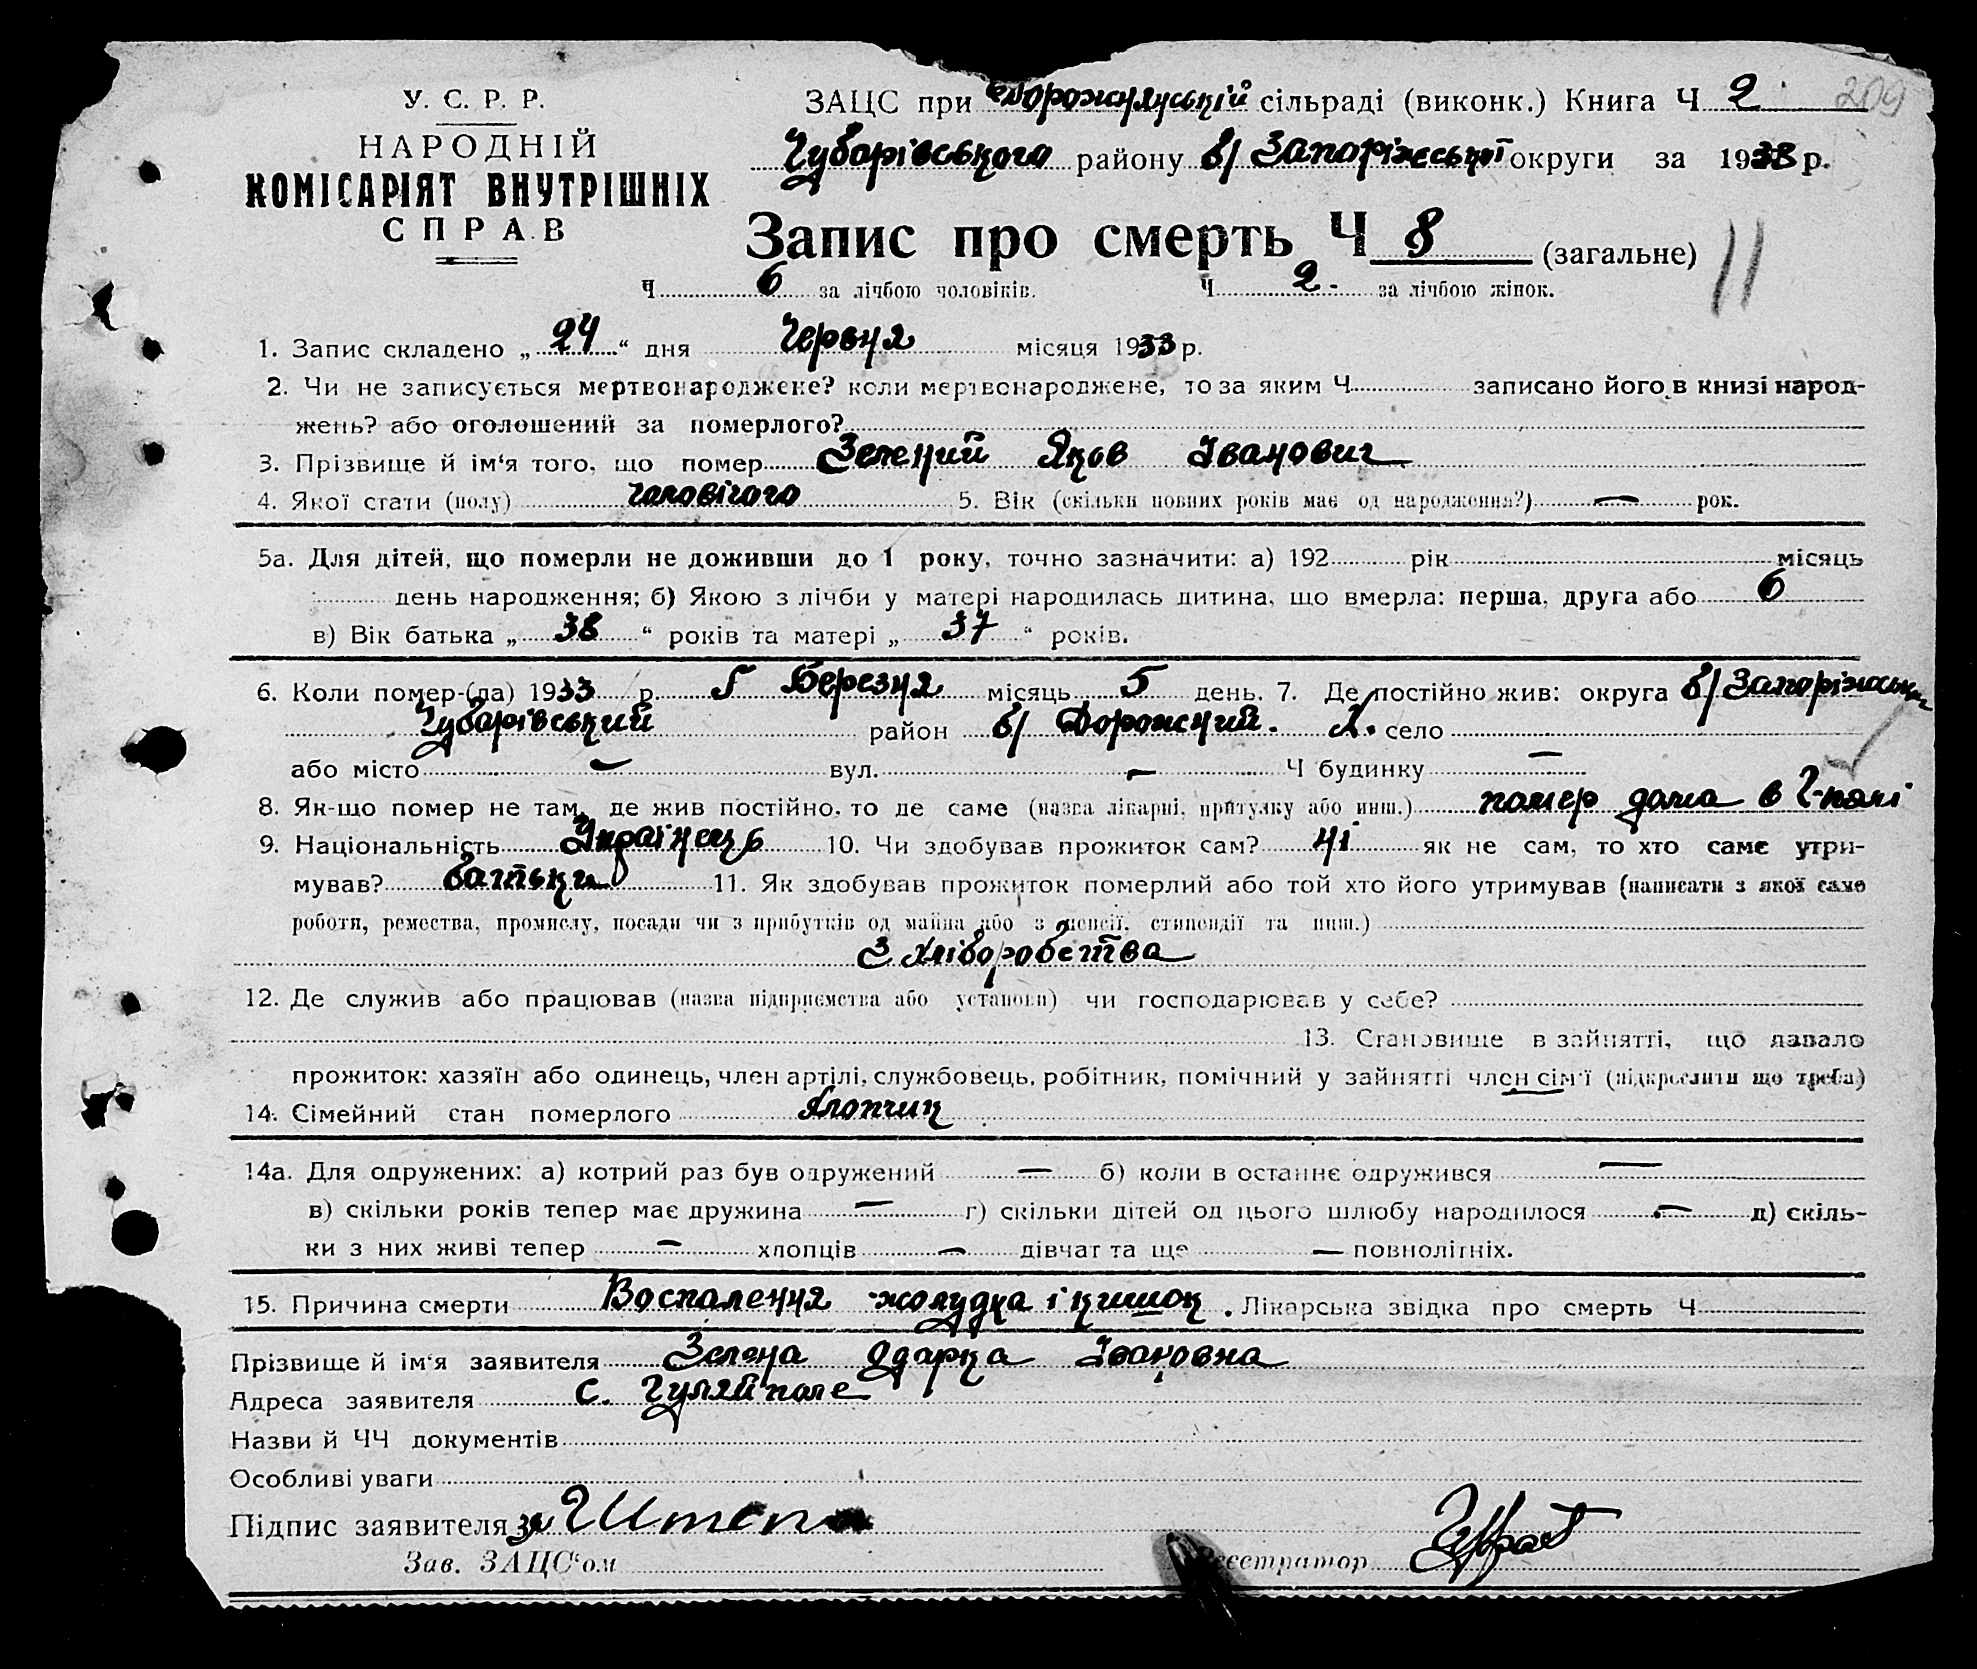 209
У. С. Р. Р.
НАРОДНІЙ
КОМІСАРІЯТ ВНУТРІШНІХ
СПРАВ
ЗАЦС при сільраді (виконк.) Книга Ч 2
Чубарівського району б/ Запоріжської округи за 1933 р.
Запис про смерть Ч 8 (загальне)
11
Ч 6 за лічбою чоловіків. Ч 2 - за лічбою жінок.
1. Запис складено „ 24 “ дня Червня місяця 1933 р.
2. Чи не записується мертвонароджене? коли мертвонароджене, то за яким Ч записано його в книзі народ-
жень? або оголошений за померлого?
3. Прізвище й ім‘я того, що помер Зелений Яков Іванович
4. Якої стати (полу) чоловічого 5. Вік (скільки повних років має од народження?) — рок.
5а. Для дітей, що померли не доживши до 1 року, точно зазначити: а) 192 рік місяць
день народження; б) Якою з лічби у матері народилась дитина, що вмерла: перша, друга або 6
в) Вік батька „ 38 “ років та матері „ 37 “ років.
6. Коли помер-(ла) 1933 р. Березня місяць 5 день. 7. Де постійно жив: округа б/ Запоріжська
Чубарівський район б/ село
або місто — вул. — Ч будинку —
8. Як-що помер не там, де жив постійно, то де саме (назва лікарні, притулку або инш.) помер дома в Г-полі
9. Національність Українець 10. Чи здобував прожиток сам? ні як не сам, то хто саме утри-
мував? батьки 11. Як здобував прожиток померлий або той хто його утримував (написати з якої саме
роботи, ремества, промислу, посади чи з прибутків од майна або з пенсії, стипендії та инш.)
З хліборобства
12. Де служив або працював (назва підприємства або установи) чи господарював у себе?
13. Становище в зайнятті, що давало
прожиток: хазяїн або одинець, член артілі, службовець, робітник, помічний у зайнятті член сім‘ї (підкреслити що треба)
14. Сімейний стан померлого хлопчик
14а. Для одружених: а) котрий раз був одружений — б) коли в останнє одружився —
в) скільки років тепер має дружина — г) скільки дітей од цього шлюбу народилося — д) скіль-
ки з них живі тепер — хлопців — дівчат та ще — повнолітніх.
15. Причина смерти Воспалення жолудка і кишок. Лікарська звідка про смерть Ч
Прізвище й ім‘я заявителя Зелена Одарка Івановна
Адреса заявителя с. Гуляйполе
Назви й ЧЧ документів
Особливі уваги
Підпис заявителя
Зав. ЗАЦС‘ом Реєстратор